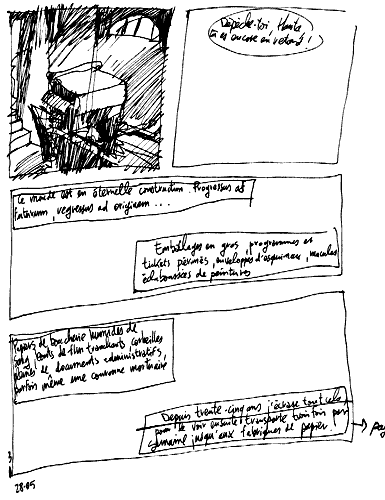 Dépêche-toi, Hanta
tu es encore en retard !
Le monde est en éternelle construction. Progressus ad
futurum, regressus ad originem...
Emballages en gros, programmes et
tickets périmés, enveloppes d'esquimaux, maculas
éclaboussées de peintures
Papiers de boucherie humides de
sang, bouts de film tranchants corbeilles
pleines de documents administratifs,
parfois même une couronne mortuaire
Depuis trente-cinq ans j'écrase tout cela
pour le voir ensuite transporté trois fois par
semaine jusqu'aux fabriques de papier !
28.05